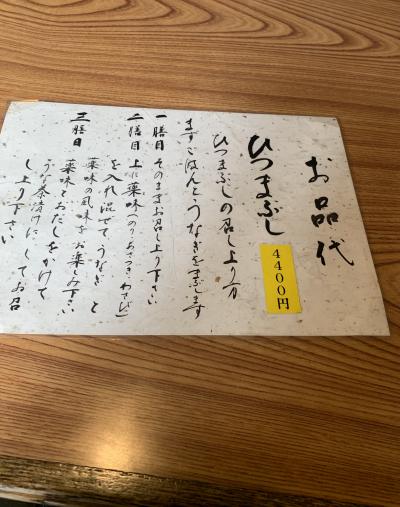 お品代
ひつまぶし
4400円
ひつまぶしの召し上り方
まずごはんとうなぎをまぶします
一膳目 そのままお召し上り下さい
二膳目 上に薬味(のり・あさつき・わさび)
を入れ混ぜて、うなぎと
薬味の風味をお楽しみ下さい
三膳目 薬味とおだしをかけて
うな茶漬けにしてお召
し上り下さい